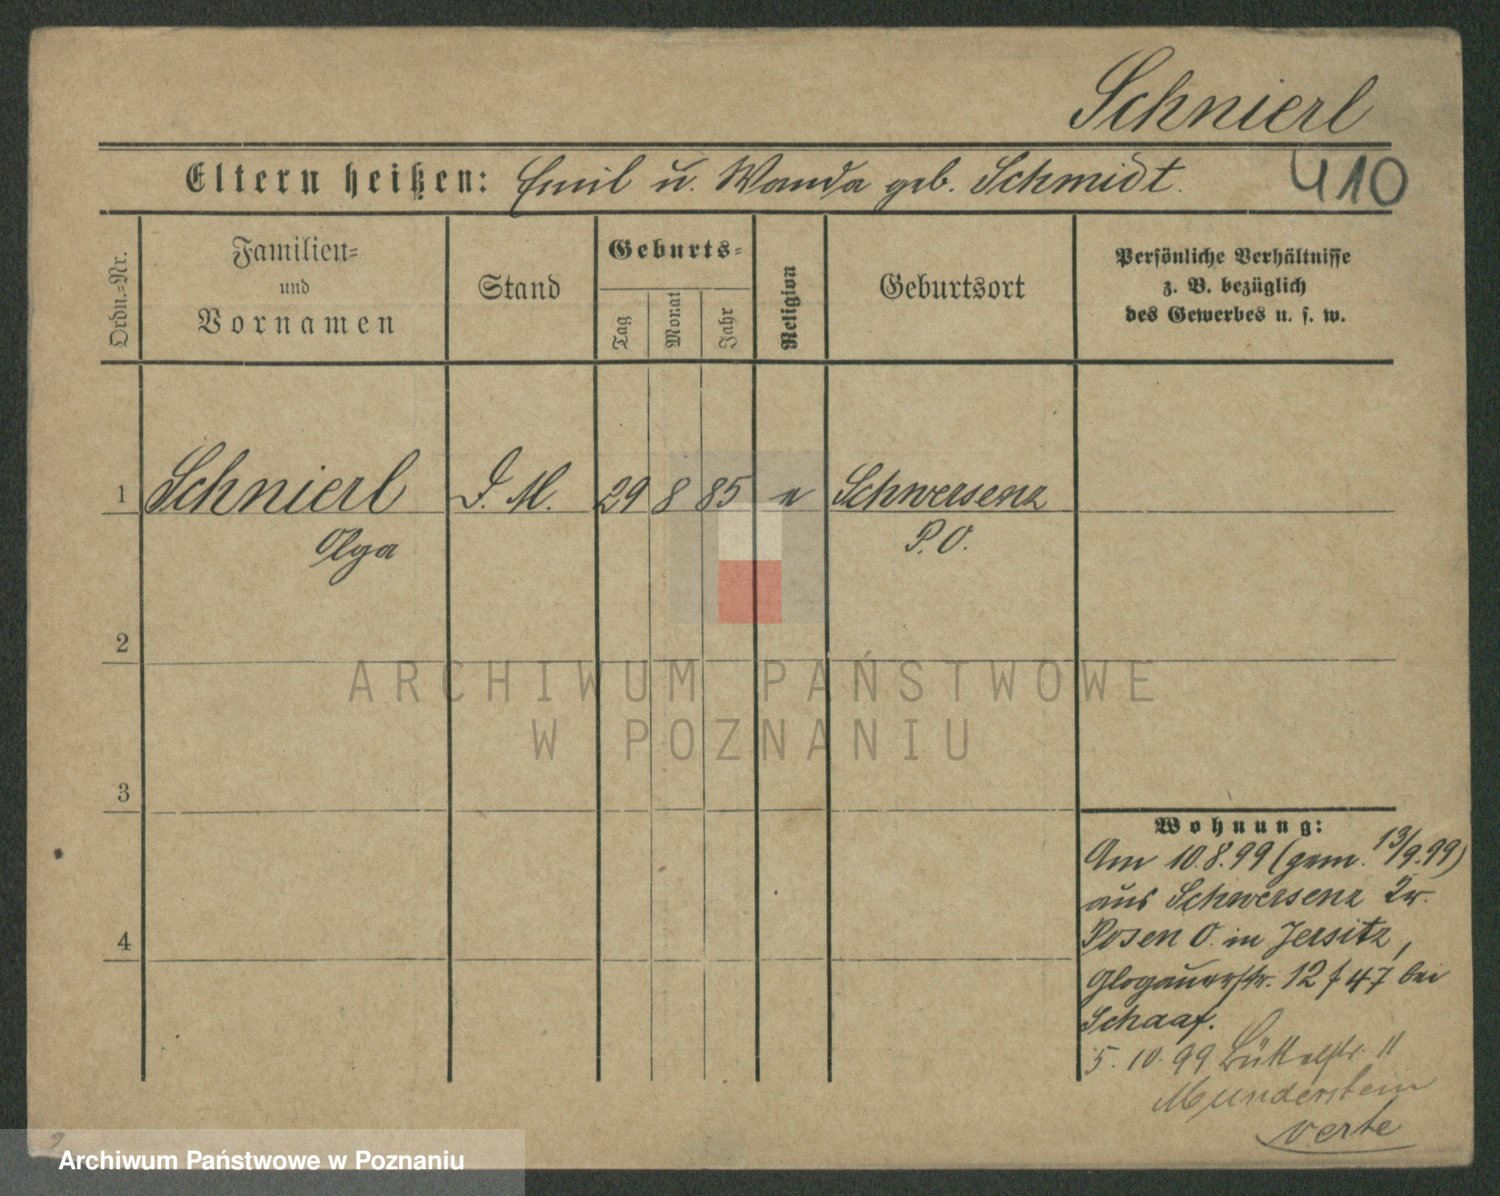 Schnierl
Eltern heißen: Emil u. Wanda geb. Schmidt.
410
Ordn.-Nr.
Familien-
und
Vornamen
Stand
Geburts-
Tag
Monat
Jahr
Religion
Geburtsort
Persönliche Verhältnisse
z. B. bezüglich
des Gewerbes u. s. w.
1 Schnierl D. M. 29 8 85 Schwersenz
Olga P. O.
2
3
4
ARCHIWUM PAŃSTWOWE
W POZNANIU
Wohnung:
Am 10.8.99 (gem. 13/9.99)
aus Schwersenz Kr.
Posen O. in Jersitz,
Glogauerstr. 12 f 47 bei
Schaaf.
5. 10. 99 11
Munderstein
verte
Archiwum Państwowe w Poznaniu